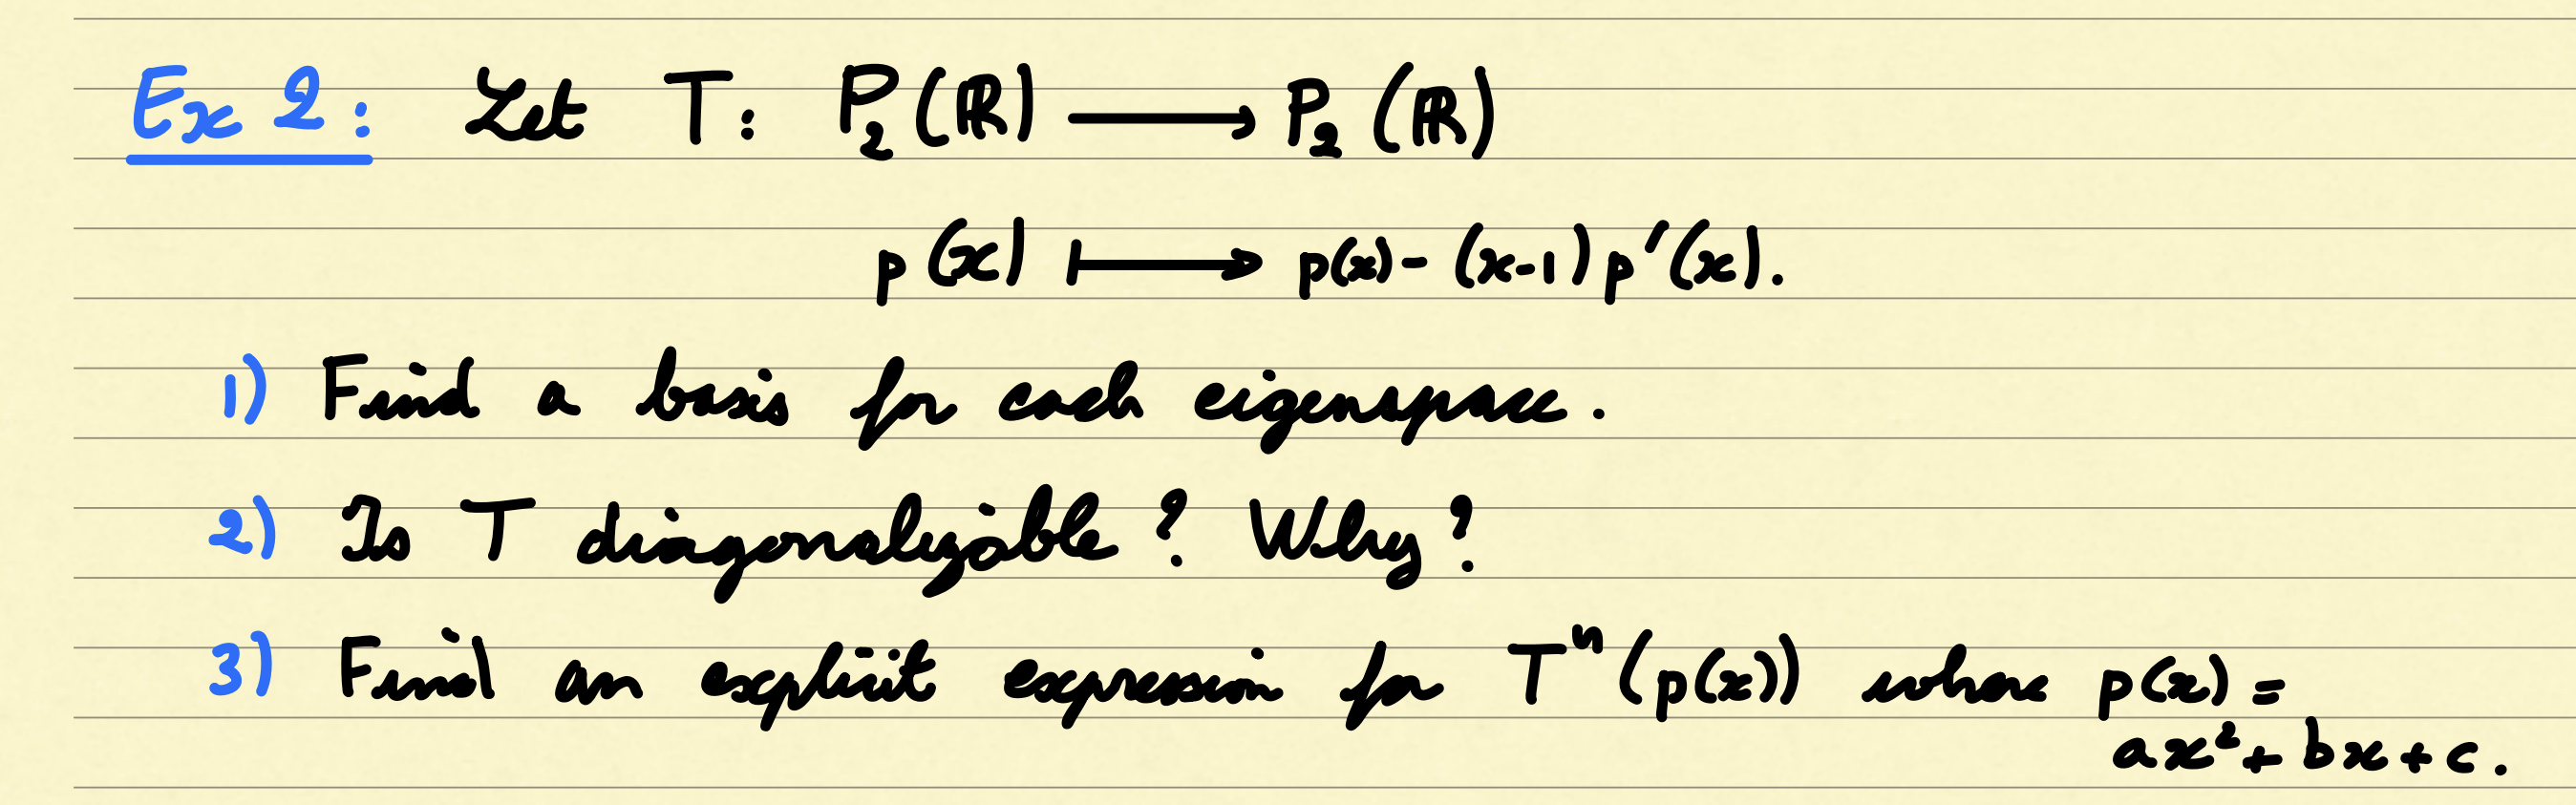 Ex 2: Let T: P₂(ℝ) ⟶ P₂(ℝ)
p(x) ⟼ p(x) - (x-1)p'(x).
1) Find a basis for each eigenspace.
2) Is T diagonalizable? Why?
3) Find an explicit expression for Tⁿ(p(x)) where p(x) =
ax² + bx + c.